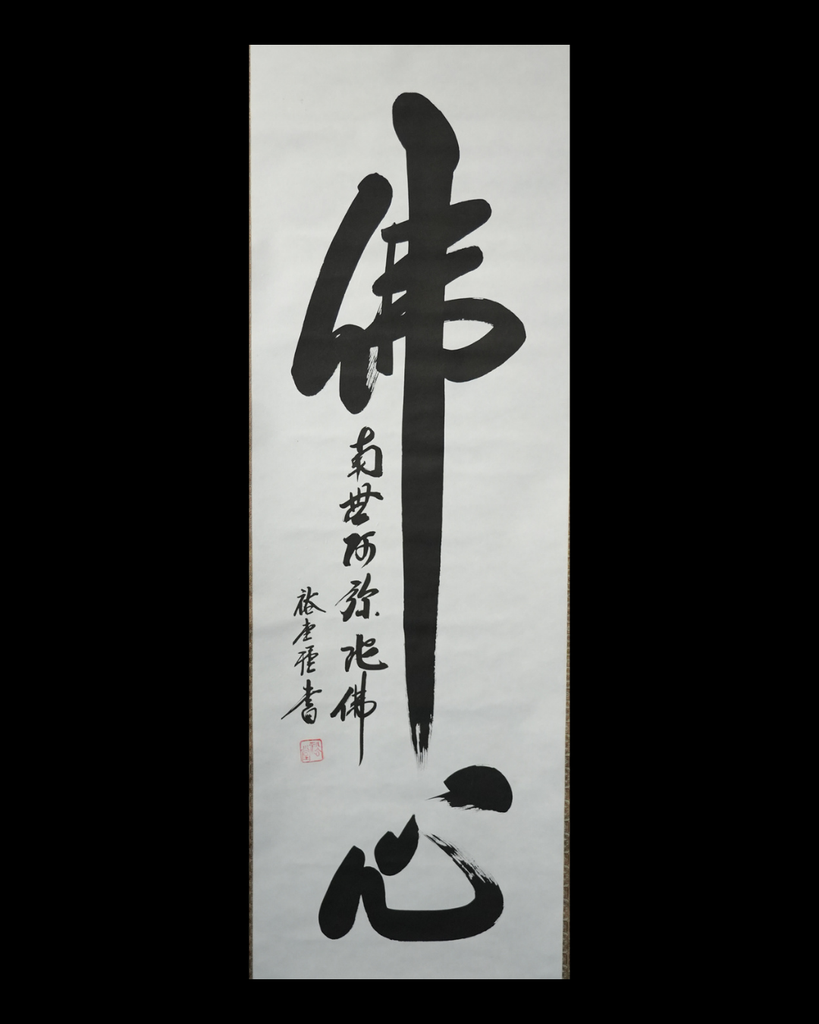 佛心
南無阿弥陀佛
書